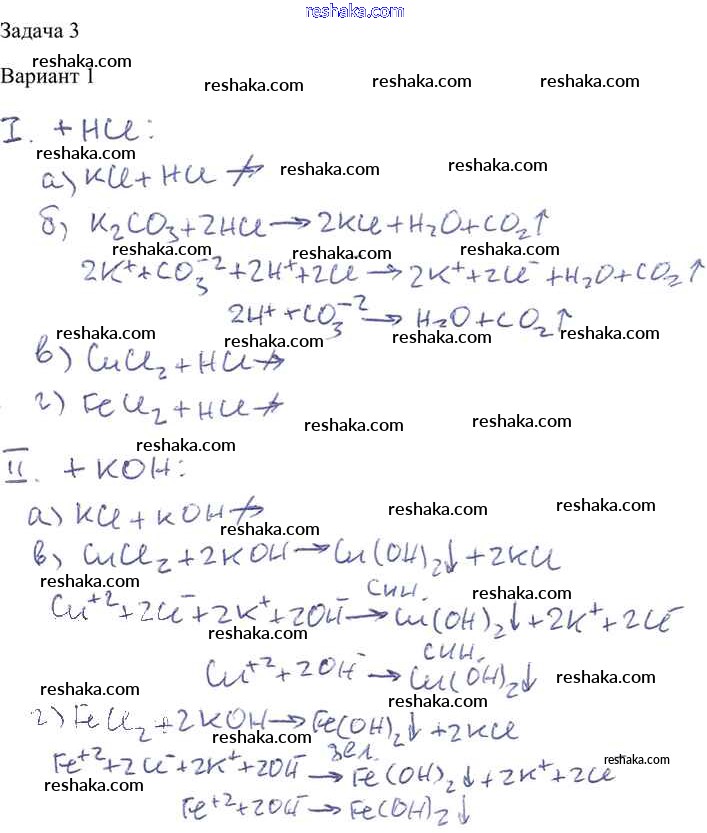 reshaka.com
Задача 3
reshaka.com
Вариант 1
reshaka.com reshaka.com
I. + HCl:
reshaka.com reshaka.com reshaka.com
а) KCl + HCl ↛
б) K₂CO₃ + 2HCl → 2KCl + H₂O + CO₂↑
reshaka.com reshaka.com reshaka.com
2K⁺ + CO₃⁻² + 2H⁺ + 2Cl → 2K⁺ + 2Cl⁻ + H₂O + CO₂↑
2H⁺ + CO₃⁻² → H₂O + CO₂↑
reshaka.com reshaka.com reshaka.com
в) CuCl₂ + HCl ↛
г) FeCl₂ + HCl ↛
reshaka.com reshaka.com reshaka.com
II. + KOH:
а) KCl + KOH ↛
reshaka.com reshaka.com reshaka.com
в) CuCl₂ + 2KOH → Cu(OH)₂↓ + 2KCl
reshaka.com reshaka.com reshaka.com
син.
Cu⁺² + 2Cl⁻ + 2K⁺ + 2OH⁻ → Cu(OH)₂↓ + 2K⁺ + 2Cl⁻
reshaka.com reshaka.com
син.
Cu⁺² + 2OH⁻ → Cu(OH)₂↓
reshaka.com reshaka.com reshaka.com
г) FeCl₂ + 2KOH → Fe(OH)₂↓ + 2KCl
reshaka.com reshaka.com
зел.
Fe⁺² + 2Cl⁻ + 2K⁺ + 2OH⁻ → Fe(OH)₂↓ + 2K⁺ + 2Cl
reshaka.com reshaka.com reshaka.com
Fe⁺² + 2OH⁻ → Fe(OH)₂↓